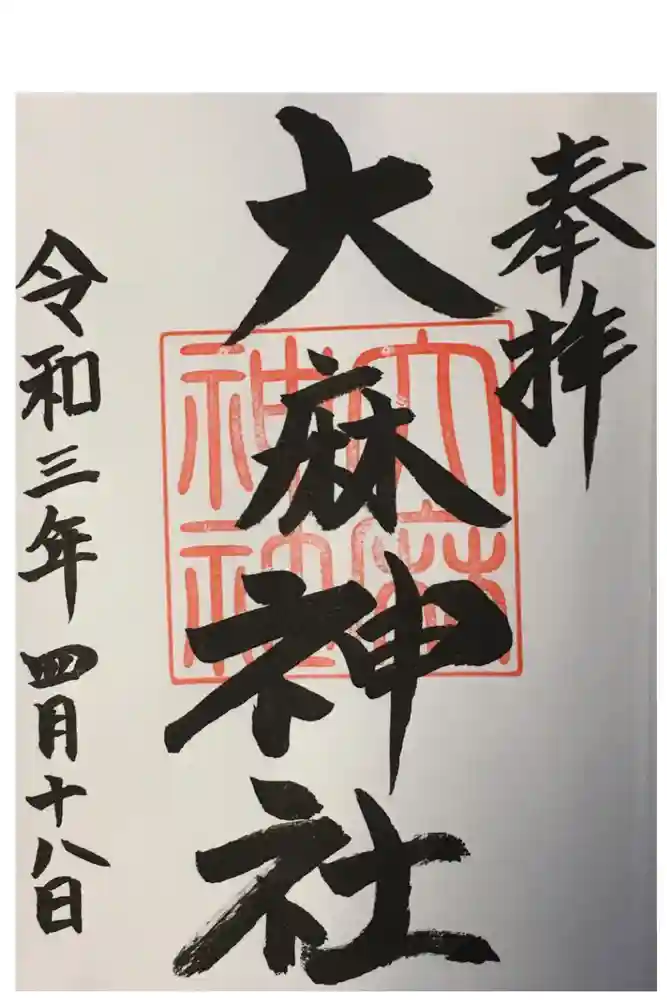 奉拝
大麻神社
大麻
神社
令和三年四月十八日